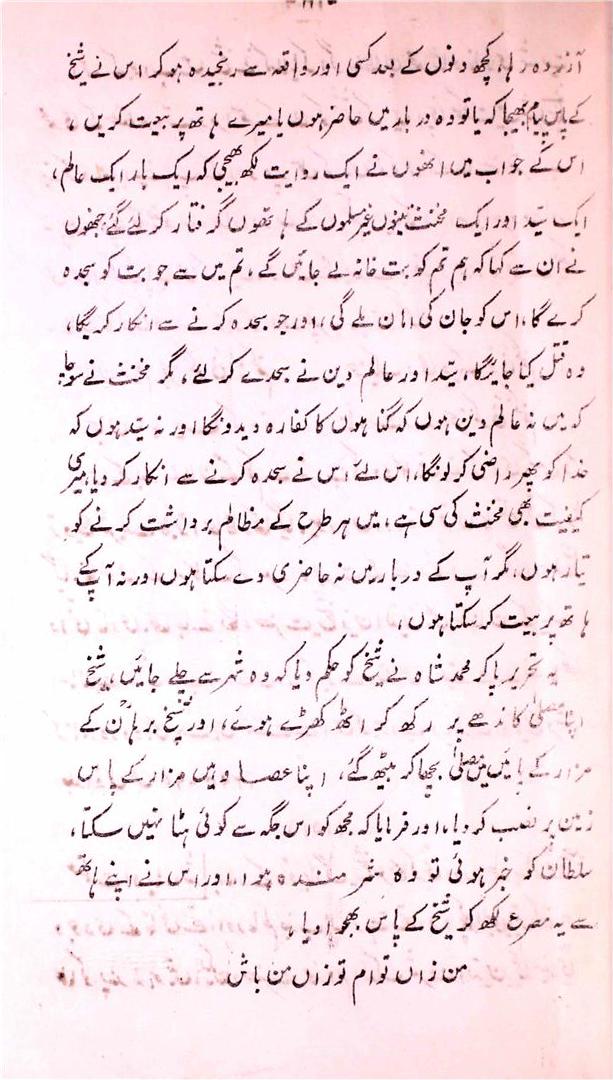 آزردہ رہا، کچھ دنوں کے بعد کسی اور واقعہ سے رنجیدہ ہو کر اس نے شیخ
کے پاس پیام بھیجا کہ یا تو وہ دربار میں حاضر ہوں یا میرے ہاتھ پر بیعت کریں،
اس کے جواب میں انھوں نے ایک روایت لکھ بھیجی کہ ایک بار ایک عالم،
ایک سید اور ایک مخنث تینوں غیر مسلموں کے ہاتھوں گرفتار کر لئے گئے جنھوں
نے ان سے کہا کہ ہم تم کو بت خانہ لے جائیں گے، تم میں سے جو بت کو سجدہ
کرے گا، اس کو جان کی امان ملے گی، اور جو سجدہ کرنے سے انکار کریگا،
وہ قتل کیا جائیگا، سید اور عالم دین نے سجدے کر لئے، مگر مخنث نے سوچا
کہ میں نہ عالم دین ہوں کہ گناہوں کا کفارہ دیدونگا اور نہ سید ہوں کہ
خدا کو پھر راضی کر لونگا، اس لئے اس نے سجدہ کرنے سے انکار کر دیا، میری
کیفیت بھی مخنث کی سی ہے، میں ہر طرح کے مظالم برداشت کرنے کو
تیار ہوں، مگر آپ کے دربار میں نہ حاضری دے سکتا ہوں اور نہ آپ کے
ہاتھ پر بیعت کر سکتا ہوں،
یہ تحریر پا کر محمد شاہ نے شیخ کو حکم دیا کہ وہ شہر سے چلے جائیں، شیخ
اپنا مصلیٰ کاندھے پر رکھ کر اٹھ کھڑے ہوئے، اور شیخ برہان کے
مزار کے پائیں میں مصلیٰ بچھا کر بیٹھ گئے، اپنا عصا وہیں مزار کے پاس
زمین پر نصب کر دیا، اور فرمایا کہ مجھ کو اس جگہ سے کوئی ہٹا نہیں سکتا،
سلطان کو خبر ہوئی تو وہ شرمندہ ہوا، اور اس نے اپنے ہاتھ
سے یہ مصرع لکھ کر شیخ کے پاس بھجوا دیا،
من زاں توام تو زاں من باش